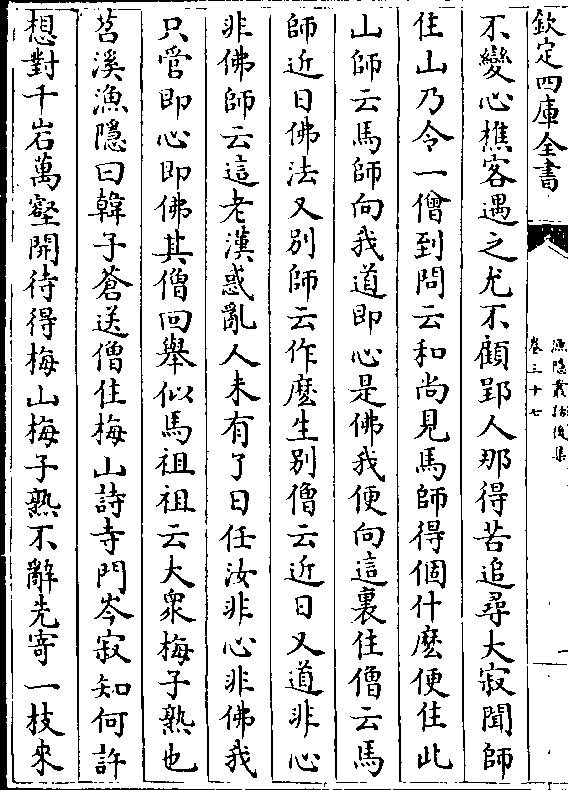 欽定四庫全書
漁隱叢話後集
卷三十七
不變心樵客遇之尤不顧郢人那得苦追尋大寂聞師
住山乃令一僧到問云和尚見馬師得個什麽便住此
山師云馬師向我道即心是佛我便向這裏住僧云馬
師近日佛法又別師云作麽生別僧云近日又道非心
非佛師云這老漢惑亂人未有了日任汝非心非佛我
只管即心即佛其僧回舉似馬祖祖云大衆梅子熟也
苕溪漁隱曰韓子蒼送僧住梅山詩寺門岑寂知何許
想對千岩萬壑開待得梅山梅子熟不辭先寄一枝來